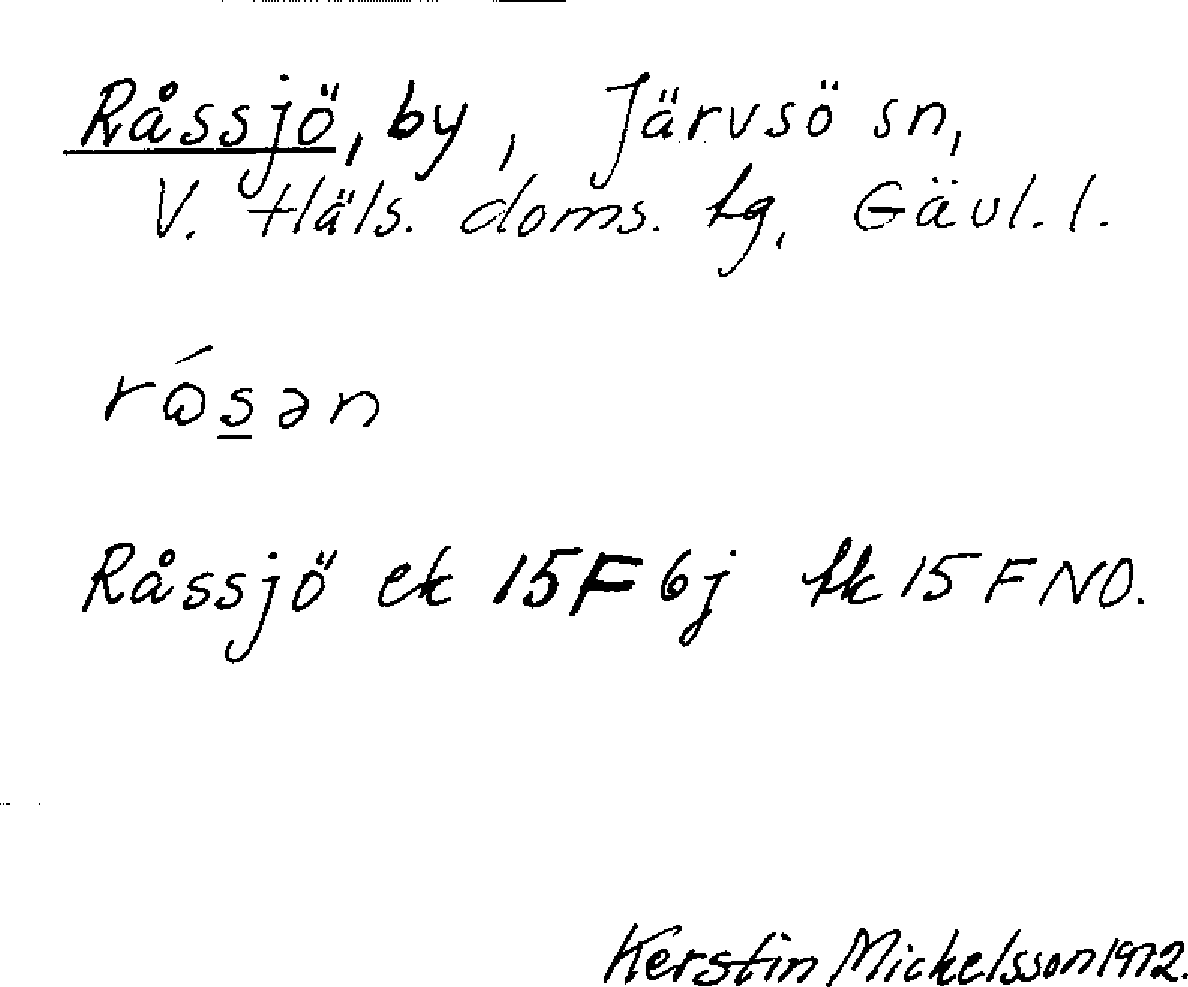 Råssjö, by, Järvsö sn,
V. Häls. doms. tg, Gävl. l.
rɷ́s̲ən
Råssjö ek 15F6j tk 15FNO.
Kerstin Mickelsson 1972.